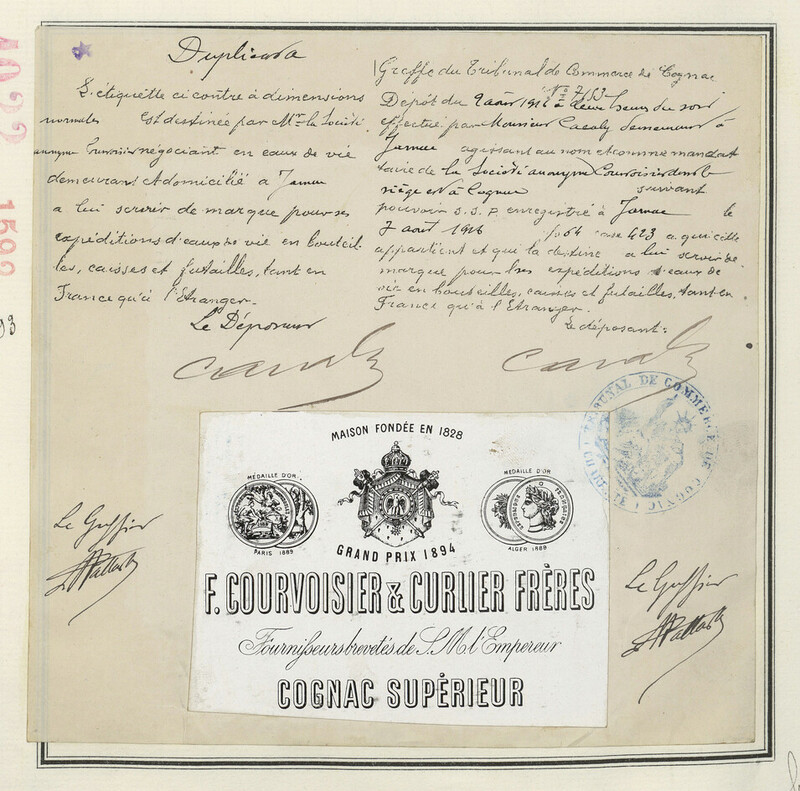 Duplicata
L'étiquette ci contre à dimensions
normales Est destinée par Mr la Société
anonyme Courvoisier négociant en eaux de vie
demeurant et domicilié a Jarnac
a lui servir de marque pour ses
expéditions d'eaux de vie en bouteil-
les, caisses et futailles, tant en
France qu'à l'Etranger.
Le Déposant
Greffe du Tribunal de Commerce de Cognac
Nº 7153
Dépôt du 9 août 1916 à deux heures du soir
effectué par Monsieur demeurant à
Jarnac agissant au nom et comme mandat
taire de la Société anonyme Courvoisier dont le
siège est à Cognac suivant
pouvoir S.S.P. enregistré à Jarnac le
7 août 1916 fo 64 case 423 a qui elle
appartient et qui la destine a lui servir de
marque pour les expéditions d'eaux de
vie en bouteilles, caisses et futailles, tant en
France qu'à l'Etranger.
Le déposant:
TRIBUNAL DE COMMERCE DE COGNAC
MAISON FONDÉE EN 1828
MÉDAILLE D'OR
PARIS 1889
MÉDAILLE D'OR
ALGER 1889
GRAND PRIX 1894
F. COURVOISIER & CURLIER FRÈRES
Fournisseurs brevetés de S. M. l'Empereur
COGNAC SUPÉRIEUR
Le Greffier
Le Greffier